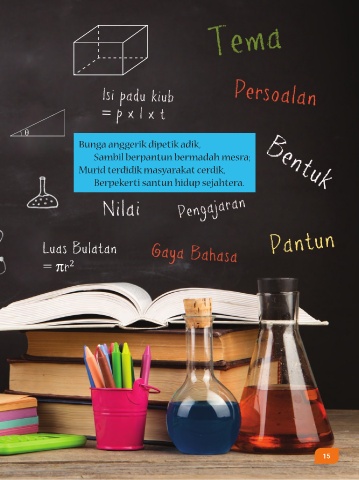 Tema
Isi padu kiub
= p x l x t
Persoalan
θ
Bunga anggerik dipetik adik,
Sambil berpantun bermadah mesra,
Murid terdidik masyarakat cerdik,
Berpekerti santun hidup sejahtera.
Bentuk
Nilai
Pengajaran
Luas Bulatan
= πr²
Gaya Bahasa
Pantun
15